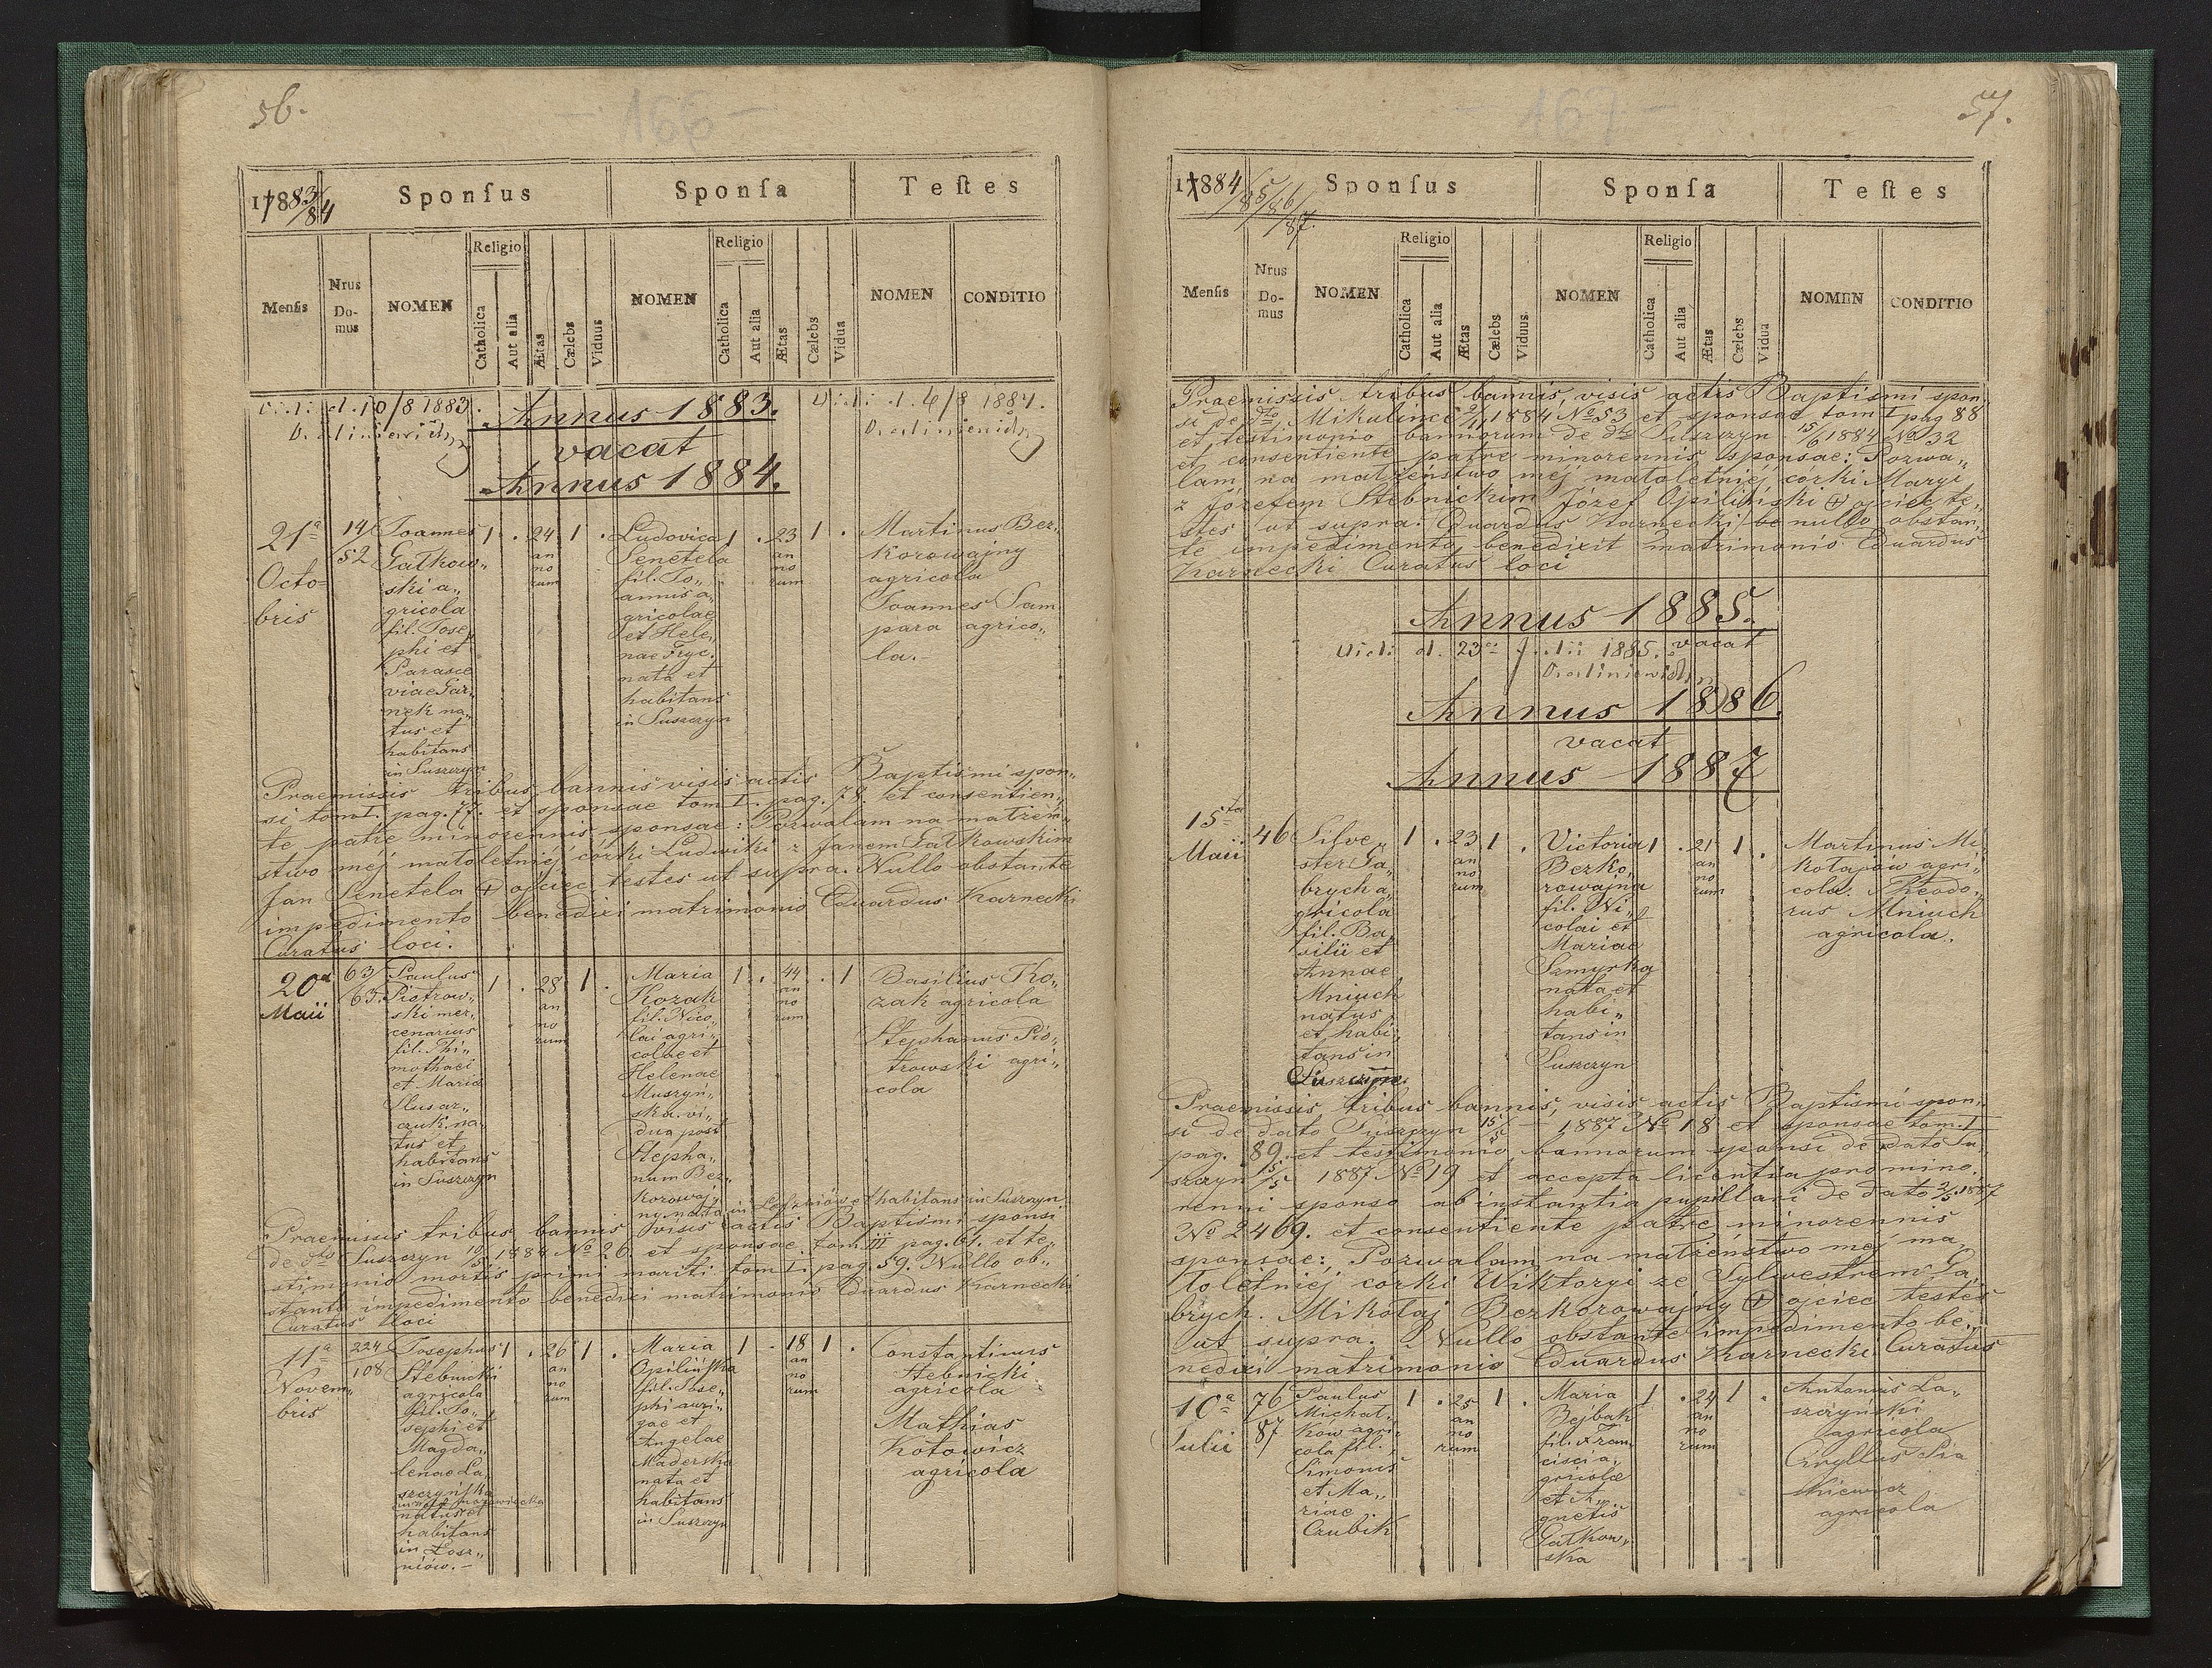 56.
- 166 -
17883/84
Sponsus
Sponsa
Testes
Mensis
Nrus Do-mus
NOMEN
Religio
Catholica
Aut alia
Ætas
Cælebs
Viduus
NOMEN
Religio
Catholica
Aut alia
Ætas
Cælebs
Vidua
NOMEN
CONDITIO
Vidi d. 10/8 1883.
Annus 1883.
Vidi d. 4/8 1884.
vacat
Annus 1884.
21a
Octo-
bris
14/
52
Joannes
Gałkow„
ski a„
gricola
fil. Jose„
phi et
Parasce
viae Gar„
nek na„
tus et
habitans
in Suszczyn
1 . 24 1 .
an
no
rum
Ludovica
Senetela
fil. Jo„
annis a„
gricolae
et Hele„
nae Fryc.
nata et
habitans
in Suszczyn
1 . 23 1 .
an
no
rum
Martinus Bez„
korowajny
agricola
Joannes Sam
para agrico„
la.
Praemissis tribus bannis visis actis Baptismi spon„
si tom I. pag. 77. et sponsae tom I. pag. 78. et consentien„
te patre minorennis sponsae: Pozwalam na małżeń„
stwo mej małoletniéj córki Ludwiki z Janem Gałkowskim
Jan Senetela + ojciec, testes ut supra. Nullo obstante
impedimento benedixi matrimonio Eduardus Karnecki
Curatus loci.
20a
Maii
63/
63.
Paulus
Piotrow„
ski mer„
cenarius
fil. Thi„
mothaei
et Maria
Slusar„
czuk na„
tus et
habitans
in Suszczyn
1 . 28 1 .
an
no
rum
Maria
Kozak
fil. Nico„
lai agri„
colae et
Helenae
Muszyń„
ska vi„
dua post
Stepha„
num Bez„
korowaj„
ny nata in Łoszniów et habitans in Suszczyn
1 . 44 . 1
an
no
rum
Basilius Ko„
zak agricola
Stephanus Pio„
trowski agri„
cola
Praemissis tribus bannis visis actis Baptismi sponsi
de dto Suszczyn 10/5 1884 No 26. et sponsae tom III pag. 61. et te„
stimonio mortis primi mariti tom I. pag. 59. Nullo ob„
stante impedimento benedixi matrimonio Eduardus Karnecki
Curatus loci
11a
Novem„
bris
224
108
Josephus
Stebnicki
agricola
fil. Jo„
sephi et
Magda„
lenae La„
szczyńska
natus et
habitans
in Łosz„
niów.-
1 . 26 1 .
an
no
rum
Maria
Opilińska
fil. Jose„
phi auri„
gae et
Angelae
Maderska
nata et
habitans
in Suszczyn
1 . 18 1 .
an
no
rum
Constantinus
Stebnicki
agricola
Mathias
Kotowicz
agricola
57.
- 167 -
17884/85/86/87.
Sponsus
Sponsa
Testes
Mensis
Nrus Do-mus
NOMEN
Religio
Catholica
Aut alia
Ætas
Cælebs
Viduus
NOMEN
Religio
Catholica
Aut alia
Ætas
Cælebs
Vidua
NOMEN
CONDITIO
Praemissis tribus bannis, visis actis Baptismi spon„
si de dto Mikulince 2/11 1884 No 53 et sponsae tom I pag 88
et testimonio bannorum de dto Suszczyn 15/6 1884 No 32
et consentiente patre minorennis sponsae: Pozwa„
lam na małżeństwo méj małoletniéj córki Maryi
z Józefem Stebnickim Józef Opiliński + ojciec te„
stes ut supra. Eduardus Karnecki nullo obstan„
te impedimento benedixit matrimonio Eduardus
Karnecki Curatus loci
Annus 1885.
vacat
Vidi d. 23 Julii 1885.
Annus 1886.
vacat
Annus 1887
15ta
Maii
46
Silve„
ster Ga„
brych a„
gricola
fil. Ba„
silii et
Annae
Mniuch
natus
et habi„
tans in
Suszczyn
1 . 23 1 .
an
no
rum
Victoria
Bezko„
rowajna
fil. Ni„
colai et
Mariae
Szmyrka
nata et
habi„
tans in
Suszczyn
1 . 21 1 .
an
no
rum
Martinus Mi
kołajów agri„
cola. Theodo„
rus Mniuch
agricola.
Praemissis tribus bannis, visis actis Baptismi spon„
si de dato Suszczyn 15/5 1887 No 18 et sponsae tom. I
pag. 89. et testimonio bannorum sponsi de dato Su„
szczyn 15/5 1887 No 19 et accepta licentia pro mino„
renni sponso ab instantia pupillari de dato 2/5 1887
No 2469. et consentiente patre minorennis
sponsae: Pozwalam na małżeństwo méj ma„
łoletniéj córki Wiktoryi ze Sylwestrem Ga„
brych. Mikołaj Bezkorowajny + ojciec testes
ut supra. Nullo obstante impedimento be„
nedixi matrimonio Eduardus Karnecki Curatus
10a
Julii
76
87
Paulus
Michał„
ków agri„
cola fil.
Simonis
et Ma„
riae
Czubik
1 . 25 1 .
an
no
rum
Maria
Bejbak
fil. Fran„
cisci a„
gricolae
et A„
gnetis
Gałkow„
ska
1 . 24 1 .
an
no
rum
Antonius La„
szczyński
agricola
Cyryllus Pia
skiewicz
agricola